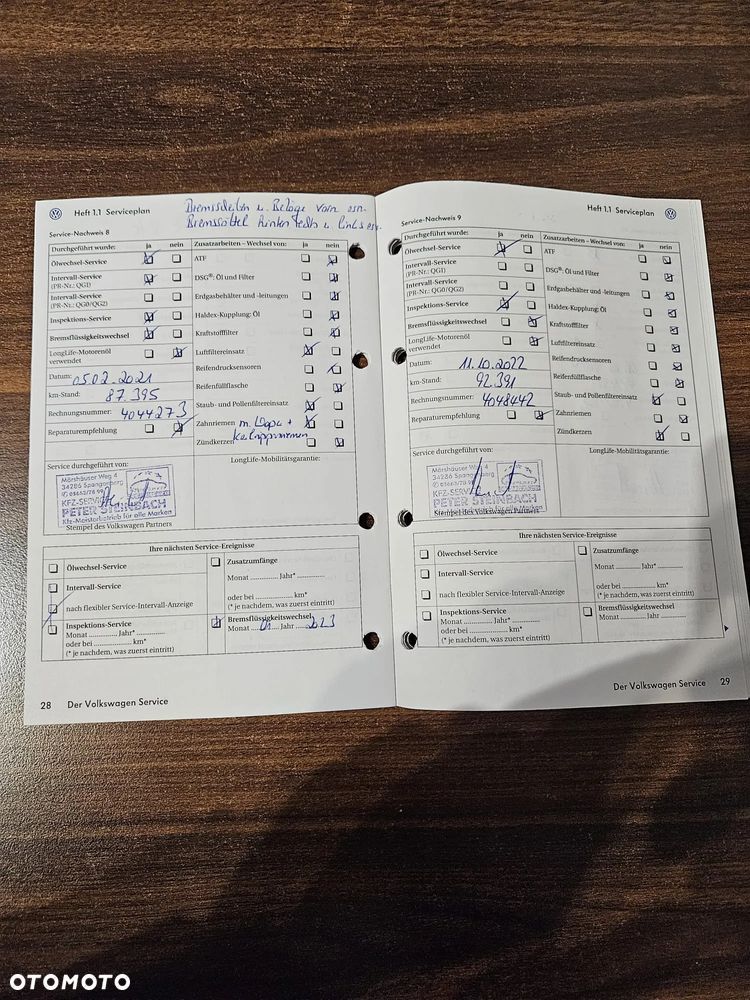 Heft 1.1 Serviceplan
Bremsscheiben u. Beläge vorn ern.
Bremssättel hinten rechts u. links ern.
Service-Nachweis 8
Durchgeführt wurde: ja nein
Zusatzarbeiten – Wechsel von: ja nein
Ölwechsel-Service
ATF
Intervall-Service
(PR-Nr.: QG1)
DSG®: Öl und Filter
Intervall-Service
(PR-Nr.: QG0/QG2)
Erdgasbehälter und -leitungen
Inspektions-Service
Haldex-Kupplung: Öl
Bremsflüssigkeitswechsel
Kraftstofffilter
LongLife-Motorenöl
verwendet
Luftfiltereinsatz
Datum: 05.02.2021
Reifendrucksensoren
km-Stand: 87.395
Reifenfüllflasche
Rechnungsnummer: 4044273
Staub- und Pollenfiltereinsatz
Reparaturempfehlung
Zahnriemen m. Wapu +
Keilrippenriemen
Zündkerzen
Service durchgeführt von:
LongLife-Mobilitätsgarantie:
Mörshäuser Weg 4
34286 Spangenberg
KFZ-SERVICE
PETER STEINBACH
Kfz-Meisterbetrieb für alle Marken
Stempel des Volkswagen Partners
Ihre nächsten Service-Ereignisse
Ölwechsel-Service
Zusatzumfänge
Monat ............ Jahr* ............
Intervall-Service
oder bei ............ km*
nach flexibler Service-Intervall-Anzeige
(* je nachdem, was zuerst eintritt)
Inspektions-Service
Monat ............ Jahr* ............
oder bei ............ km*
(* je nachdem, was zuerst eintritt)
Bremsflüssigkeitswechsel
Monat 01 Jahr 2023
28 Der Volkswagen Service
Heft 1.1 Serviceplan
Service-Nachweis 9
Durchgeführt wurde: ja nein
Zusatzarbeiten – Wechsel von: ja nein
Ölwechsel-Service
ATF
Intervall-Service
(PR-Nr.: QG1)
DSG®: Öl und Filter
Intervall-Service
(PR-Nr.: QG0/QG2)
Erdgasbehälter und -leitungen
Inspektions-Service
Haldex-Kupplung: Öl
Bremsflüssigkeitswechsel
Kraftstofffilter
LongLife-Motorenöl
verwendet
Luftfiltereinsatz
Datum: 11.10.2022
Reifendrucksensoren
km-Stand: 92.391
Reifenfüllflasche
Rechnungsnummer: 4048442
Staub- und Pollenfiltereinsatz
Reparaturempfehlung
Zahnriemen
Zündkerzen
Service durchgeführt von:
LongLife-Mobilitätsgarantie:
Mörshäuser Weg 4
34286 Spangenberg
KFZ-SERVICE
PETER STEINBACH
Stempel des Volkswagen Partners
Ihre nächsten Service-Ereignisse
Ölwechsel-Service
Zusatzumfänge
Monat ............ Jahr* ............
Intervall-Service
oder bei ............ km*
nach flexibler Service-Intervall-Anzeige
(* je nachdem, was zuerst eintritt)
Inspektions-Service
Monat ............ Jahr* ............
oder bei ............ km*
(* je nachdem, was zuerst eintritt)
Bremsflüssigkeitswechsel
Monat ............ Jahr ............
Der Volkswagen Service 29
OTOMOTO